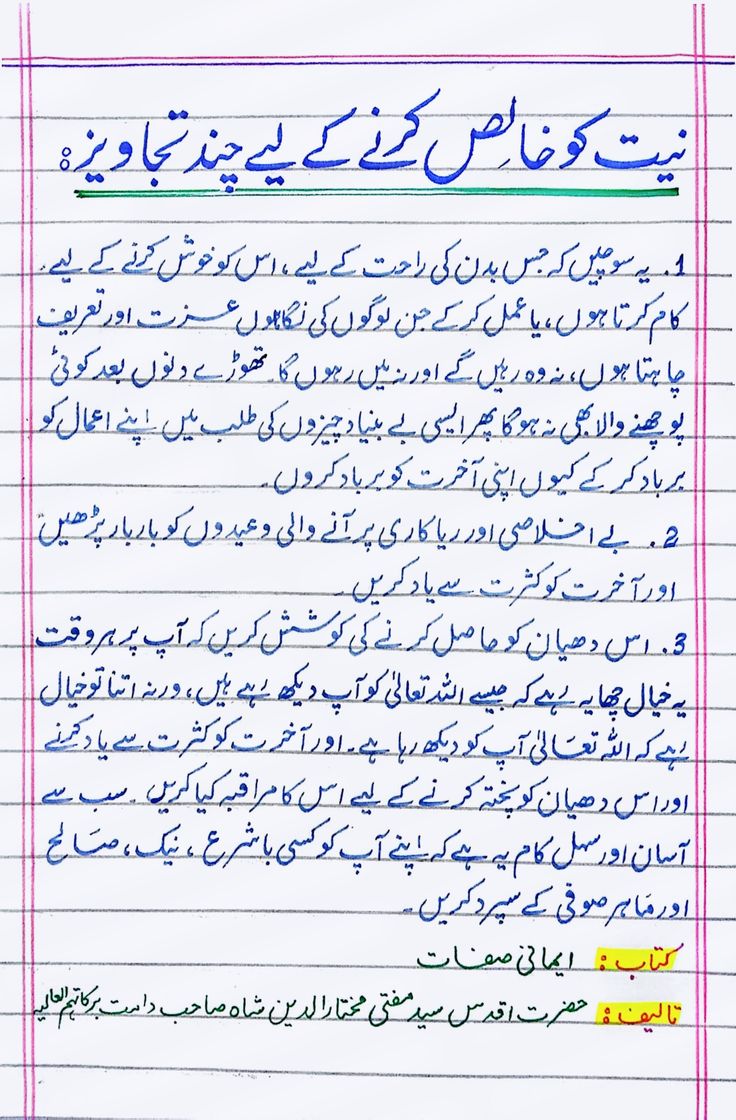 نیت کو خالص کرنے کے لیے چند تجاویز:
1. یہ سوچیں کہ جس بدن کی راحت کے لیے، اس کو خوش کرنے کے لیے
کام کرتا ہوں، یا عمل کر کے جن لوگوں کی نگاہوں عزت اور تعریف
چاہتا ہوں، نہ وہ رہیں گے اور نہ میں رہوں گا۔ تھوڑے دنوں بعد کوئی
پوچھنے والا بھی نہ ہوگا پھر ایسی بے بنیاد چیزوں کی طلب میں اپنے اعمال کو
برباد کر کے کیوں اپنی آخرت کو برباد کروں۔
2. بے اخلاصی اور ریاکاری پر آنے والی وعیدوں کو بار بار پڑھیں
اور آخرت کو کثرت سے یاد کریں۔
3. اس دھیان کو حاصل کرنے کی کوشش کریں کہ آپ پر ہر وقت
یہ خیال چھایہ رہے کہ جیسے اللہ تعالیٰ کو آپ دیکھ رہے ہیں، ورنہ اتنا تو خیال
رہے کہ اللہ تعَالیٰ آپ کو دیکھ رہا ہے۔ اور آخرت کو کثرت سے یاد کرنے
اور اس دھیان کو پختہ کرنے کے لیے اس کا مراقبہ کیا کریں۔ سب سے
آسان اور سہل کام یہ ہے کہ اپنے آپ کو کسی باشرع، نیک، صَالح
اور مَاہر صوفی کے سپرد کریں۔
کتاب: ایمانی صفات
تالیف: حضرت اقدس سید مفتی مختار الدین شاہ صاحب دامت برکاتہم العالیہ